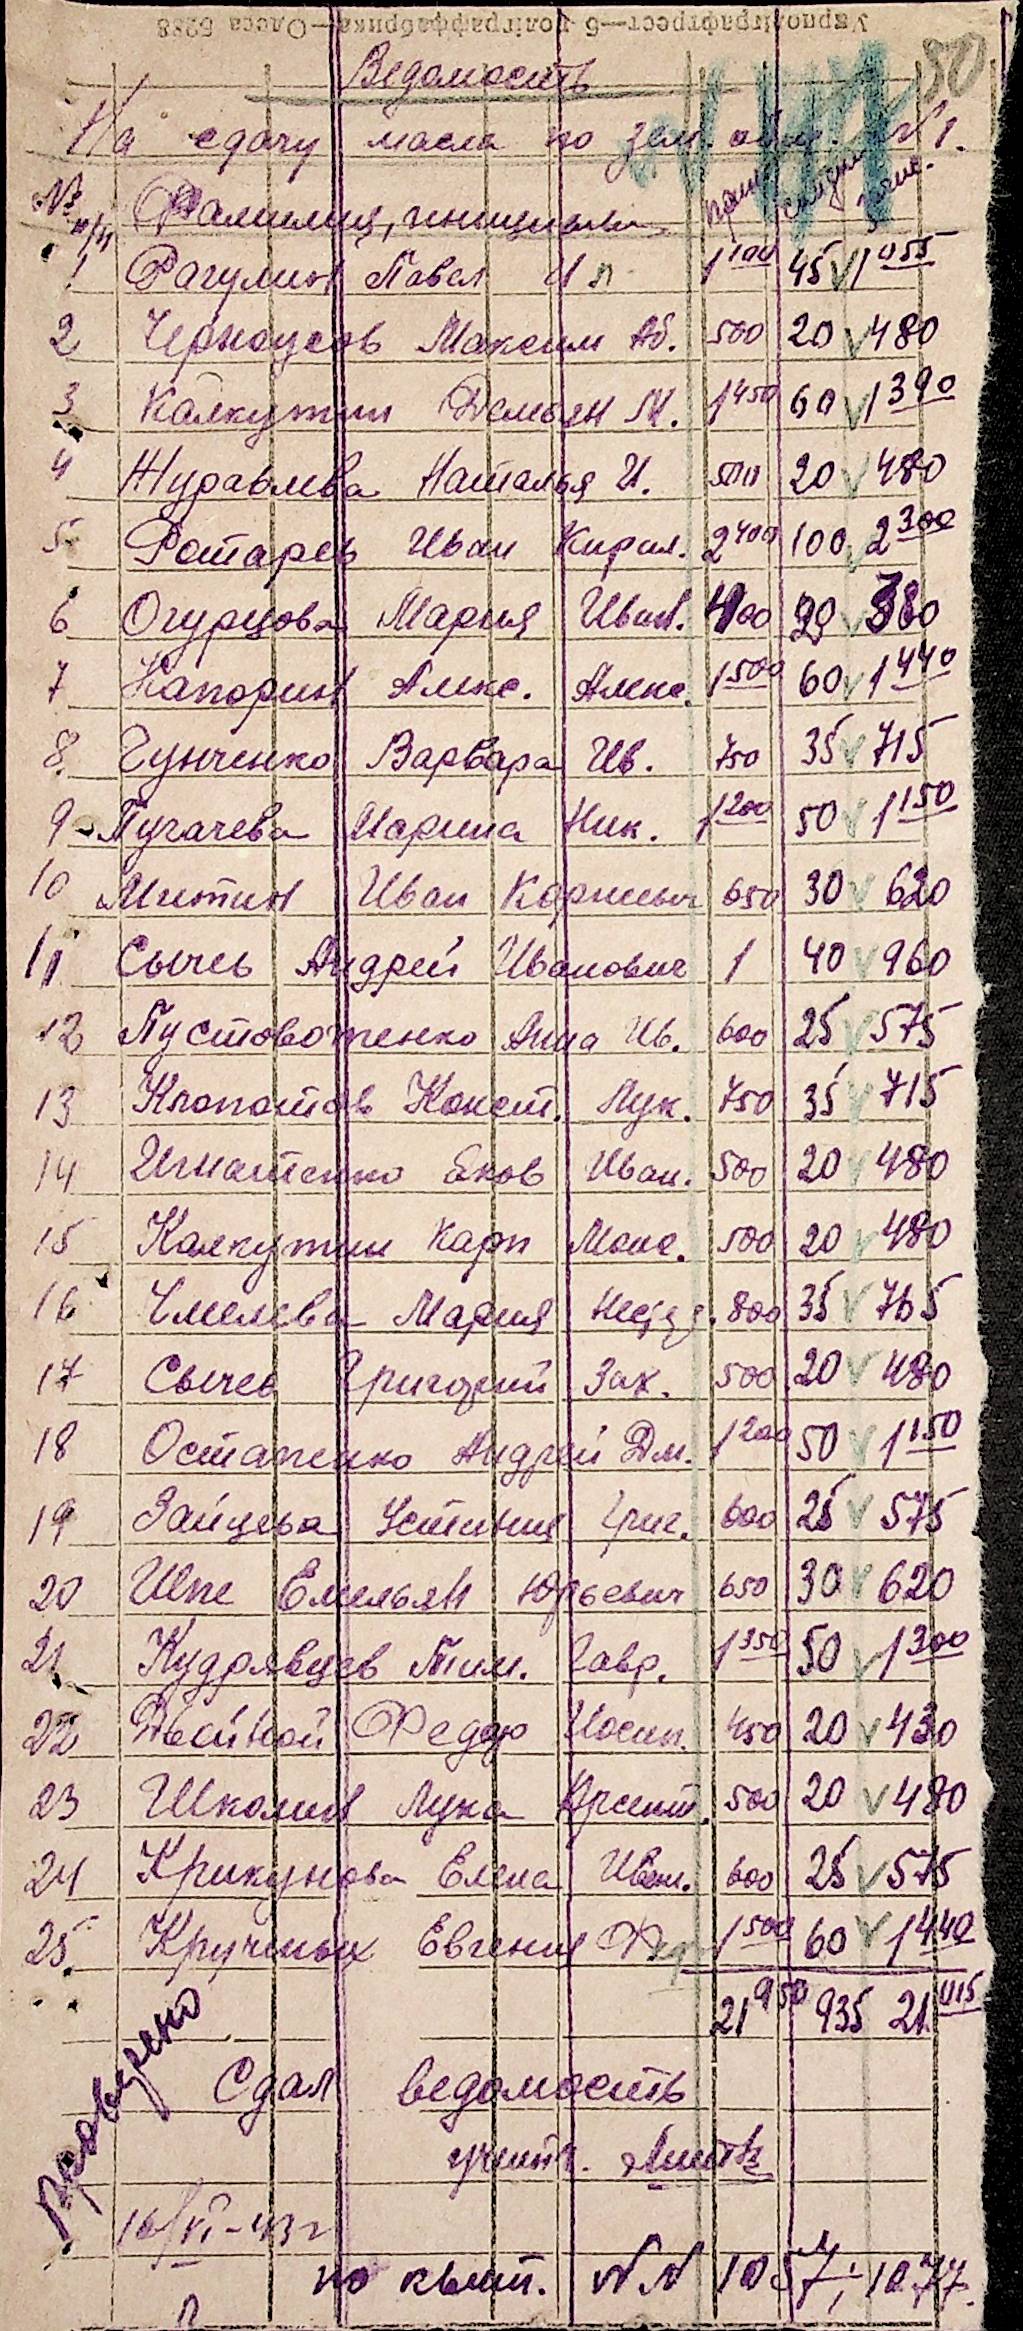 Укрполіграфтрест—6 поліграффабрика—Одеса 5288
50
Ведомость
На сдачу масла по зем. обще. №1.
№ п/п Фамилия, инициалы
1 Рагулин Павел И 1100 45 1055
2 Черноусов Максим Аб. 500 20 480
3 Калкутин Демьян М. 1450 60 1390
4 Журавлева Наталья И. 500 20 480
5 Ротарев Иван Кирил. 2400 100 2300
6 Огурцова Мария Иван. 400 20 380
7 Капорин Алекс. Алекс. 1500 60 1440
8 Гунченко Варвара Ив. 750 35 715
9 Пугачева Марина Ник. 1200 50 1150
10 Митин Иван Карпович 650 30 620
11 Сычев Андрей Иванович 1 40 960
12 Пустовотенко Анна Ив. 600 25 575
13 Клопотов Конст. Лук. 750 35 715
14 Игнатенко Яков Иван. 500 20 480
15 Калкутин Карп Моис. 500 20 480
16 Чмелева Мария 800 35 765
17 Сычев Григорий Зах. 500 20 480
18 Остапенко Андрей Дм. 1200 50 1150
19 Зайцева Устиния Григ. 600 25 575
20 Шпе Емельян Юрьевич 650 30 620
21 Кудрявцев Тим. Гавр. 1350 50 1300
22 Двойной Федор Иосип. 450 20 430
23 Школин Лука Арсент. 500 20 480
24 Крикунова Елена Иван. 600 25 575
25 Кручиных Евгения Фед 1500 60 1440
21950 935 21015
Проверено
Сдал ведомость
учетч.
16/VI-43 г
по квит. №№ 1057; 1077.